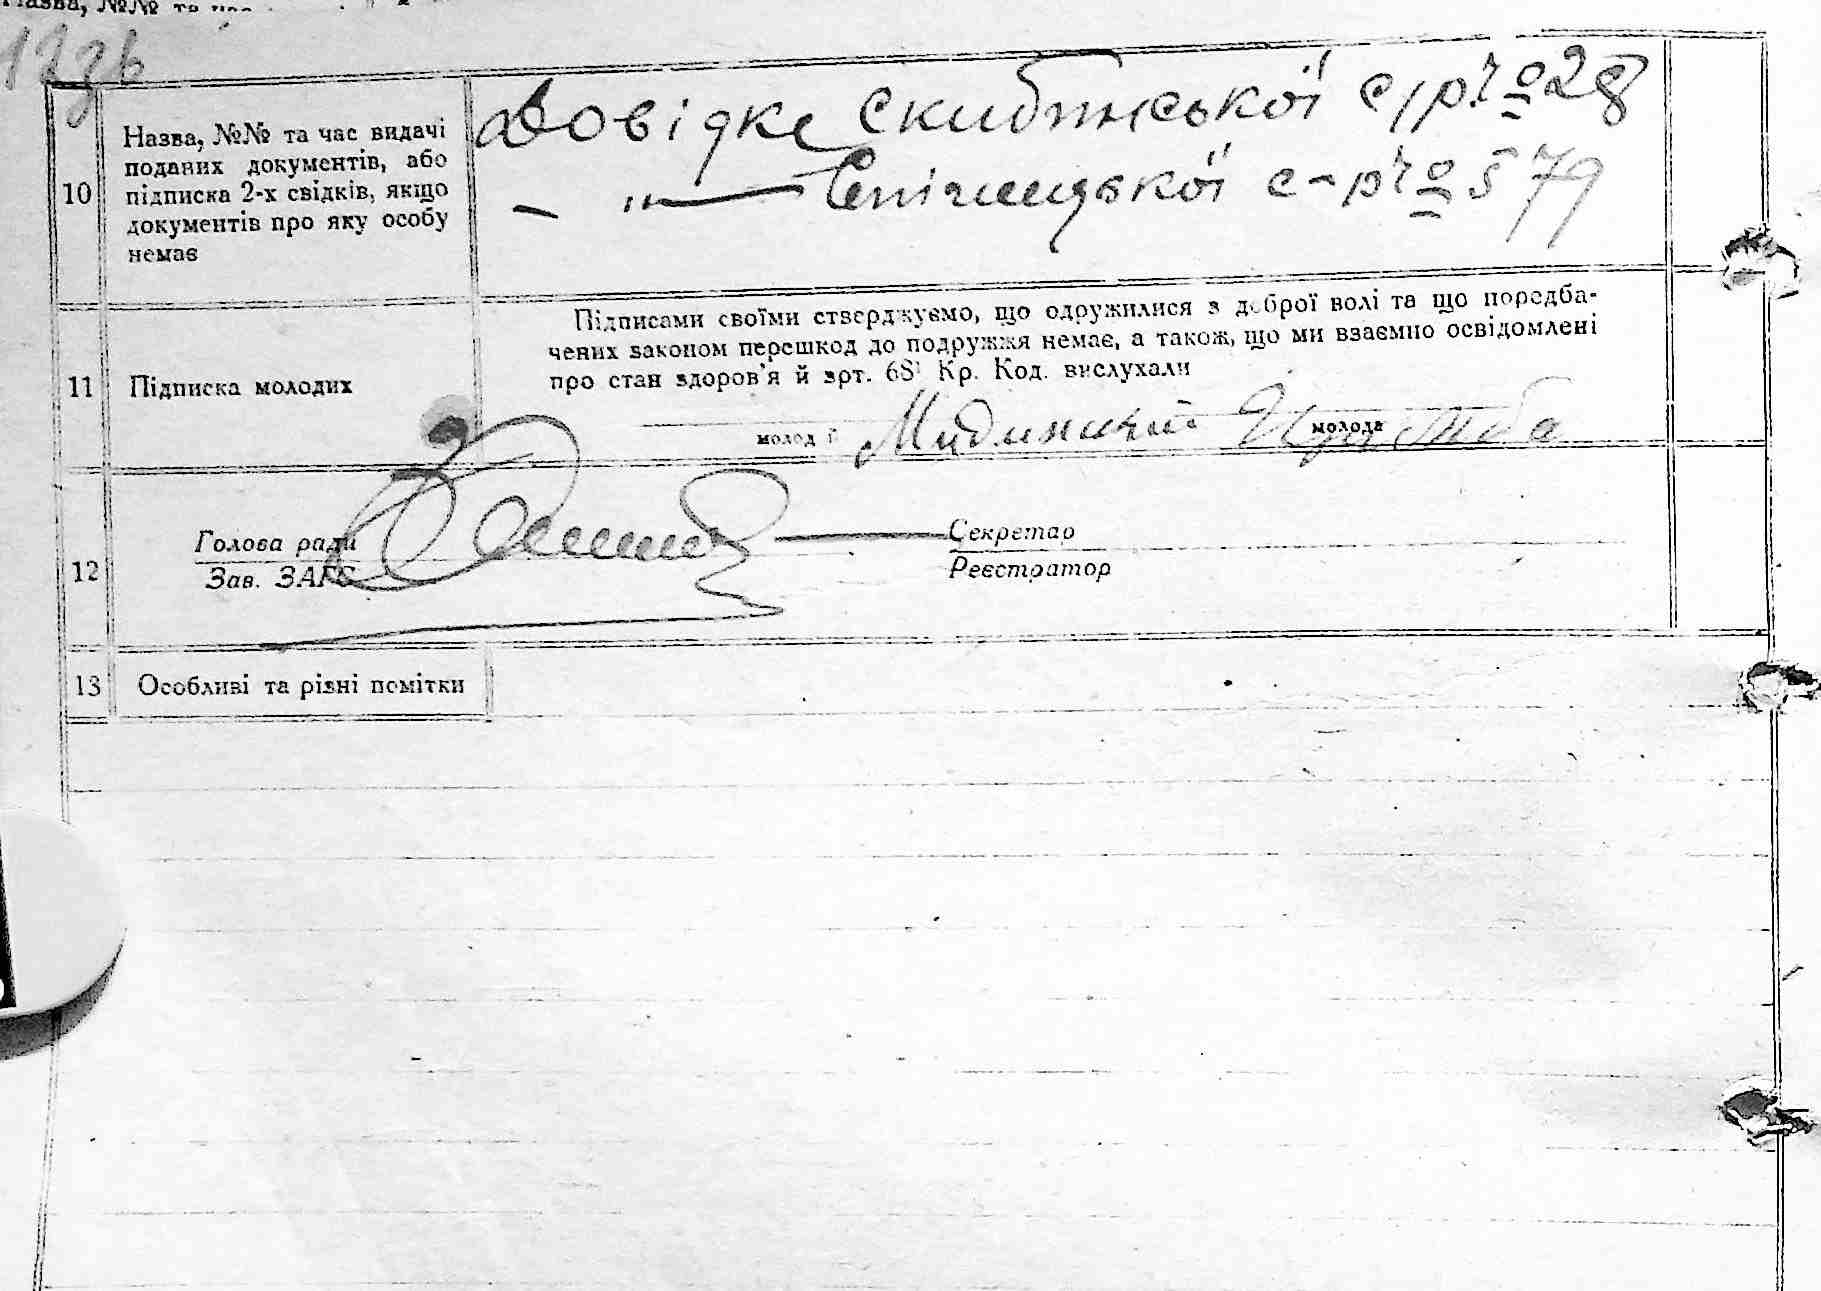 Назва, №№ та час
12зв
10
Назва, №№ та час видачі
поданих документів, або
підписка 2-х свідків, якщо
документів про яку особу
немає
Довідке Скибинської с/р № 28
— „ — Спічинецької с-р № 579
11
Підписка молодих
Підписами своїми стверджуємо, що одружилися з доброї волі та що породба-
чених законом перешкод до подружжя немає, а також, що ми взаємно освідомлені
про стан здоров'я й арт. 68¹ Кр. Код. вислухали
молодий
молода
12
Голова ради
Зав. ЗАГС
Секретар
Реєстратор
13
Особливі та різні помітки